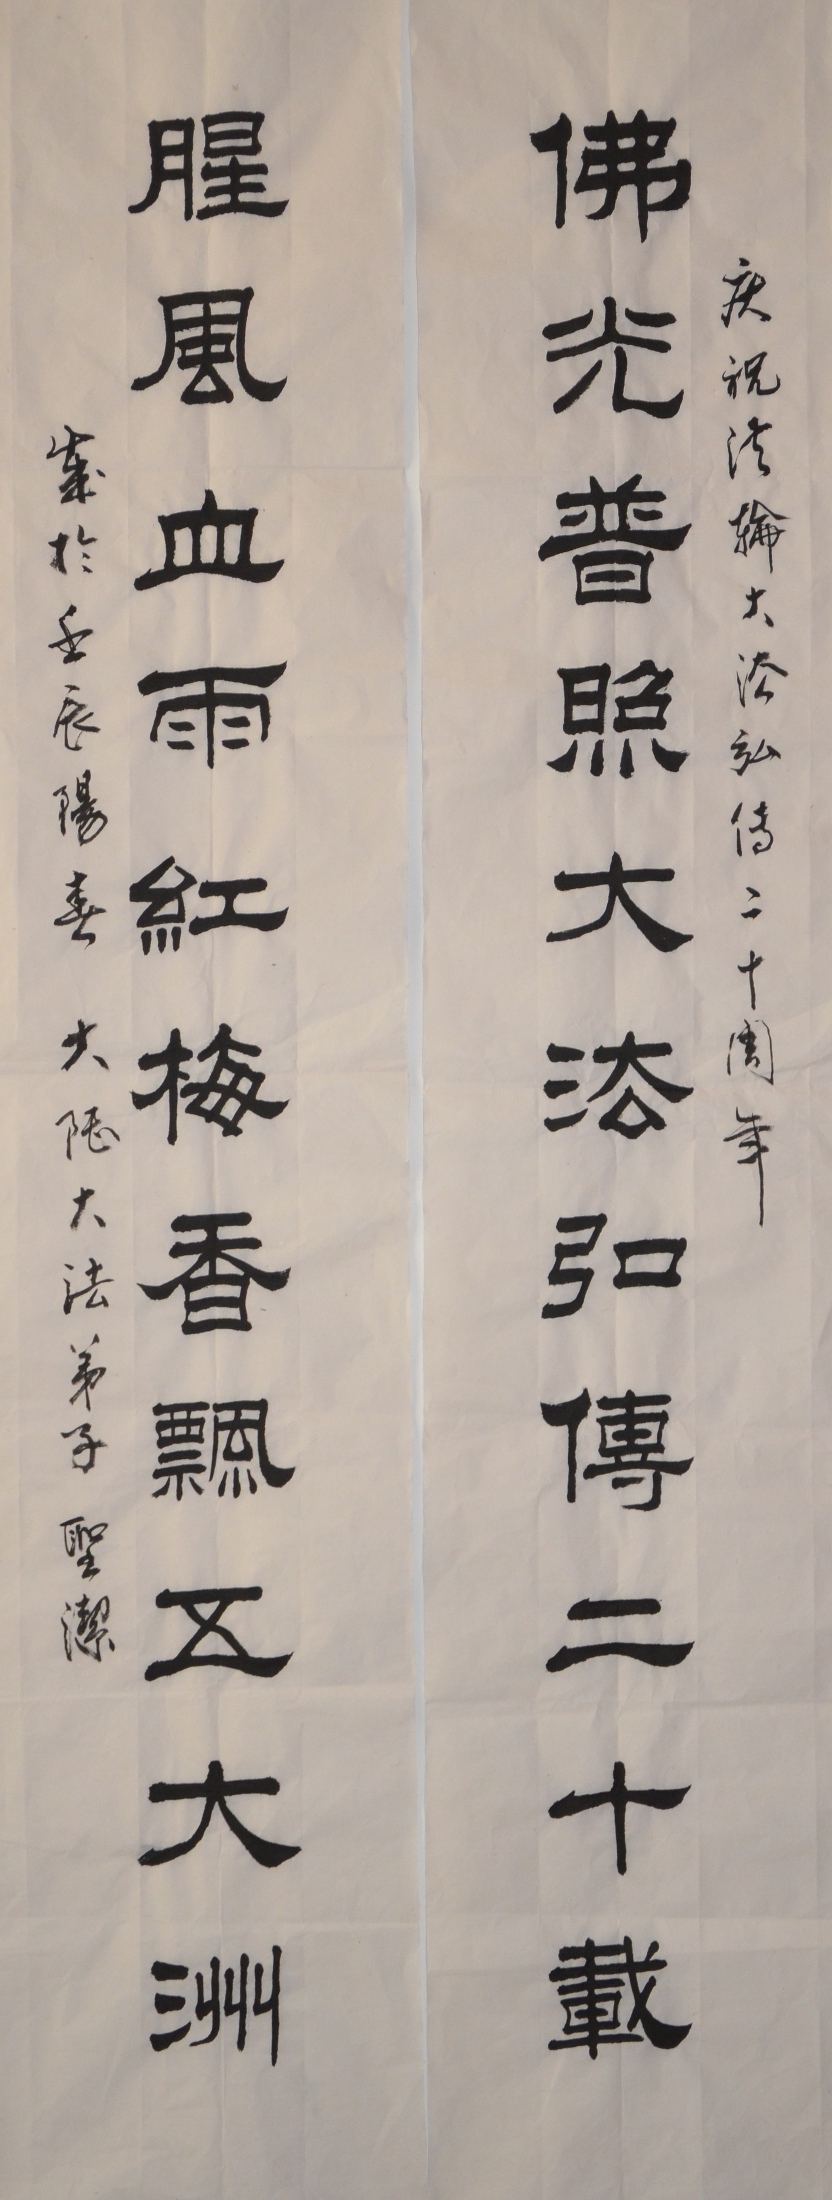 庆祝法輪大法弘傳二十周年
佛光普照大法弘傳二十載
腥風血雨紅梅香飄五大洲
歲於壬辰陽春 大陸大法弟子 聖潔